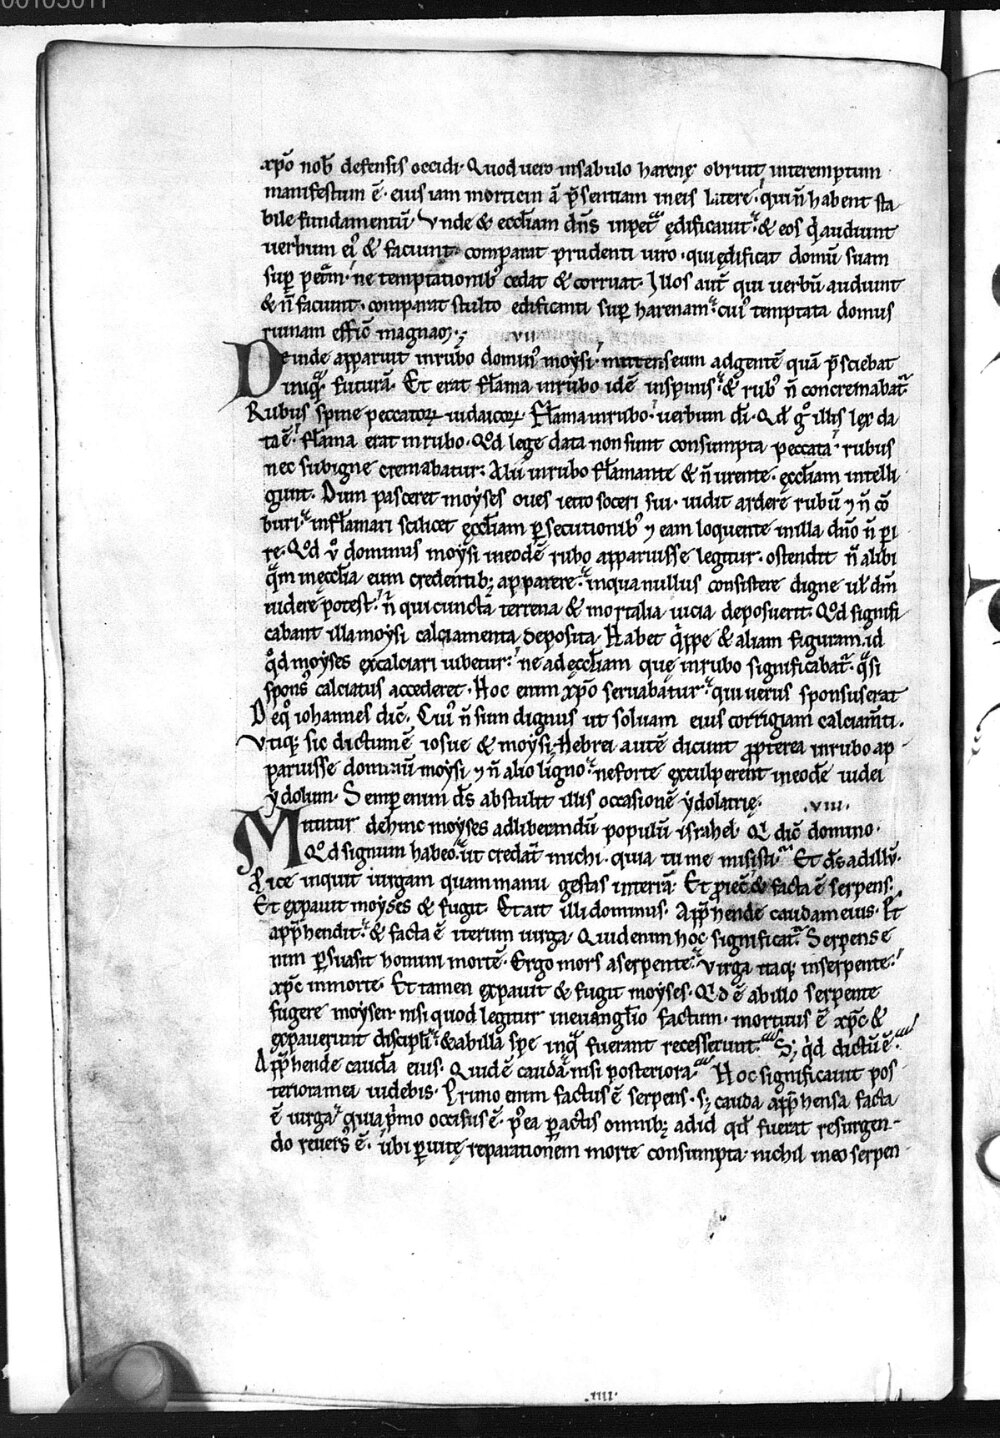 xp̄o nob̄ defensis occidi. Quod uero in sabulo harenę obruit, interemptum
manifestum ē. eius iam morticin ā p̄sentiam in eis litere. qui n̄ habent sta
bile fundamentū. Vnde & eccl̄iam dn̄s in pet̄ ędificauit. & eos q̓ audiunt
uerbum ei᾽ & faciunt. comparat prudenti uiro. qui ędificat domū suam
sup̄ pet̄m. ne temptationib᾽ cedat & corruat. Illos aut̄ qui uerbū audiunt
& n̄ faciunt. comparat stulto edificanti sup̄ harenam. cui᾽ temptata domus
ruinam effic̄ magnam. vii
Deinde apparuit in rubo domin᾽ moysi. mittens eum ad gentē quā p̄sciebat
iniqᷓ futurā. Et erat flāma in rubo idē in spinis. & rub᾽ n̄ concremabat᷑.
Rubus spine peccatoꝝ iudaicoꝝ. Flāma in rubo. uerbum di̅. Qd̄ gͦ illis lex da
ta ē. flāma erat in rubo. Qd̄ lege data non sunt consumpta peccata. rubus
nec sub igne cremabatur. Alii in rubo flāmante & n̄ urente. ęccl̄iam intelli
gunt. Dum pasceret moyses oues ietro soceri sui. uidit arderē rubū ⁊ n̄ cō
buri. inflāmari scilicet ęccl̄iam p̱secutionib᾽ ⁊ eam loquente in illa dn̄o n̄ p̱i
re. Qd̄ uͦ dominus moysi in eodē rubo apparuisse legitur. ostendit n̄ alibi
qᷓm in ęccl̄ia eum credentibꝫ apparere. in qua nullus consistere digne ul̄ dm̄
uidere potest. n̄ qui cuncta terrena & mortalia uicia deposuerit. Qd̄ signifi
cabant illa moysi calciamenta deposita. Habet q̓ppe & aliam figuram. id
qͦd moyses excalciari iubetur. ne ad ęccl̄iam que in rubo significabat᷑. qᷓsi
spons᾽ calciatus accederet. Hoc enim xp̄o seruabatur. qui uerus sponsus erat
De qͦ iohannes dic̄. Cui᾽ n̄ sum dignus ut soluam eius corrigiam calciam̄ti.
Vtiqꝫ sic dictum ē iosue & moysi. Hebrei autē dicunt ꝓpterea in rubo ap
paruisse dominū moysi ⁊ n̄ alio ligno. ne forte exculperent in eodē iudei
ydolum. Semp̱ enim ds̄ abstulit illis occasionē ydolatrię. .viii.
Mittitur dehinc moyses ad liberandū populū israhel. Q dic̄ domino.
Qd̄ signum habeo. ut credat᷑ michi. quia tu me misisti. Et ds̄ ad illū.
Pͥice inquit uirgam quam manu gestas in terrā. Et ꝓiec̄ & facta ē serpens.
Et expauit moyses & fugit. Et ait illi dominus. App̄hende caudam eius. Et
app̄hendit. & facta ē iterum uirga. Quid enim hoc significat. Serpens e
nim p̱suasit homini mortē. Ergo mors a serpente. Virga itaqꝫ in serpente.
xp̄c in morte. Et tamen expauit & fugit moyses. Qd̄ ē ab illo serpente
fugere moysen. nisi quod legitur in euangl̄io factum. mortuus ē xp̄c &
expauerunt discipl̄i. & ab illa spe in qᷓ fuerant recesserunt. Sꝫ qͥd dictū ē.
App̄hende caudā eius. Quid ē cauda nisi posteriora. Hoc significauit pos
teriora mea uidebis. Primo enim factus ē serpens. sꝫ cauda app̄hensa facta
ē uirga. quia pͥmo occisus ē. pͦea p̱actis omnibꝫ ad id qd̄ fuerat resurgen
do reuers᾽ ē. ubi p̱ uitę reparationem morte consumpta. nichil in eo serpen
.IIII.